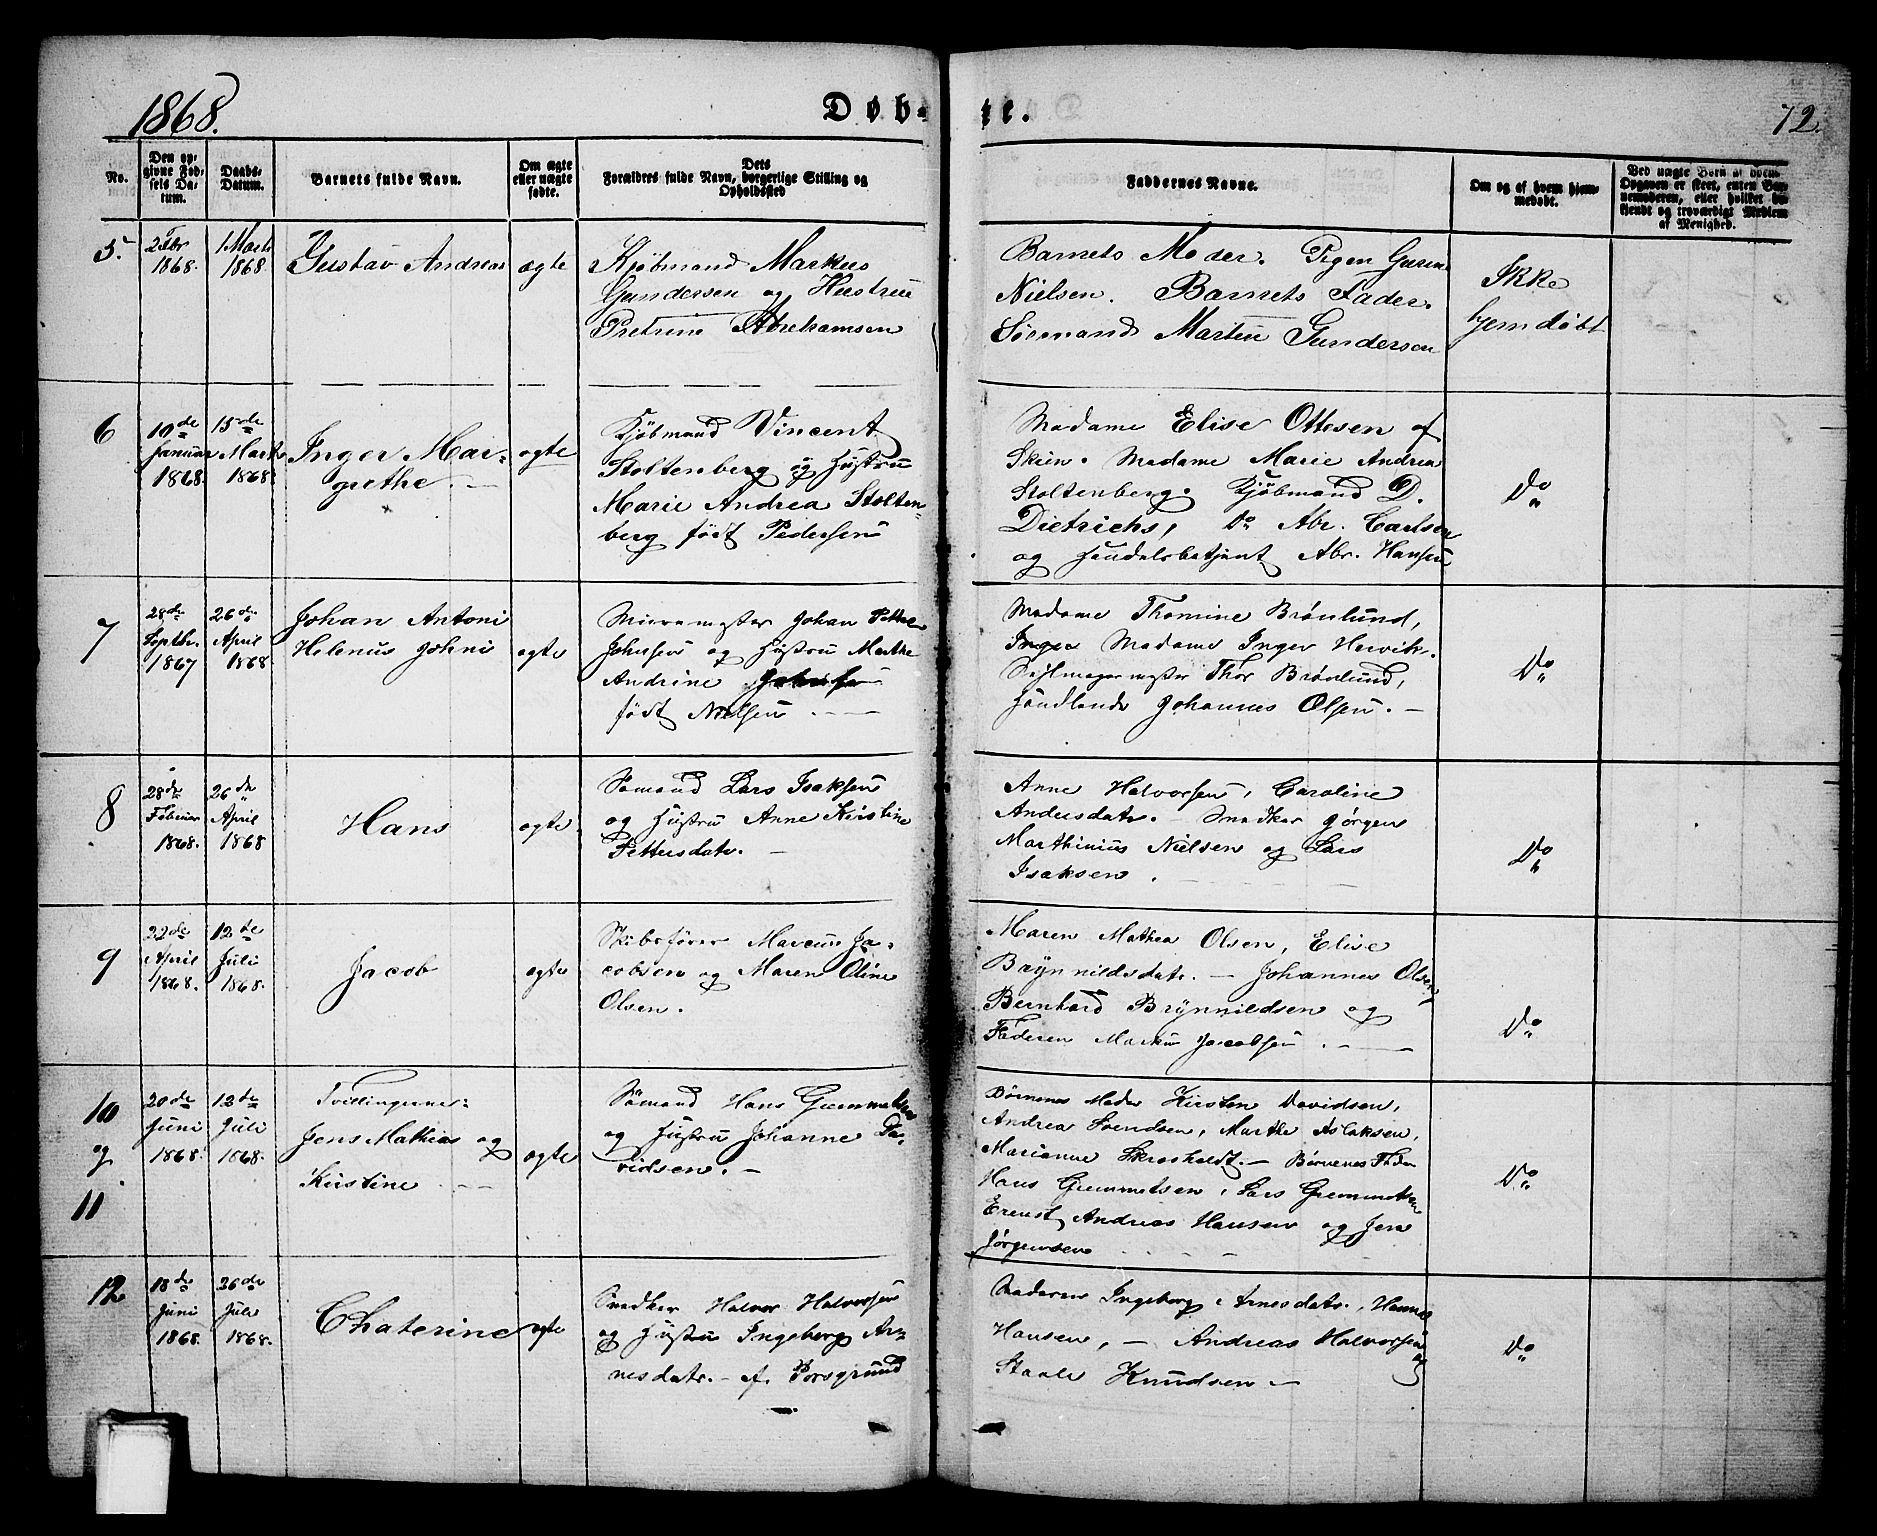 1868.
Døb-
te.
72.
No.
Den op-
givne Fød-
sels Da-
tum.
Daabs-
Datum.
Barnets fulde Navn.
Om ægte
eller uægte
fødte.
Dets
Forældres fulde Navn, borgerlige Stilling og
Opholdssted
Faddernes Navne.
Om og af hvem hjem-
medøbt.
Ved uægte Børn af hvem
Opgaven er skeet, enten Bar-
nemoderen, eller hvilket be-
kjendt og troværdigt Medlem
af Menighed.
5.
2 Febr
1868.
1 Marts
1868.
Gustav Andreas
ægte
Kjøbmand Markus
Gundersen og Hustrue
Petrine Abrahamsen
Barnets Moder. Pigen Guren
Nielsen. Barnets Fader.
Sørmand Marten Gundersen
Ikke
hjemdøbt
6
19de
Januar
1868.
15de
Marts
1868.
Inger Mar-
grethe.
ægte
Kjøbmand Vincent
Stoltenberg og Hustru
Marie Andrea Stolten-
berg født Pedersen
Madame Elise Ottesen af
Skien. Madame Marie Andrea
Stoltenberg. Kjøbmand D.
Dietrichs, Do Abr. Carlsen
og Handelsbetjent Abr. Hansen
Do
7
28de
Septbr.
1867
26de
April
1868.
Johan Antoni
Helenus Johni
ægte
Murermester Johan Petter
Johnsen og Hustru Marthe
Andrine Johnsen
født Nielsen
Madame Thomine Brønlund,
Inger Madame Inger Hervik.
Seilmagermester Thor Brønlund,
Handlende Johannes Olsen.
Do
8
28de
Februar
1868.
26de
April
1868
Hans
ægte
Sømand Lars Isaksen
og Hustru Anne Kirstine
Pettersdatr.
Anne Halvorsen, Caroline
Andersdatr. Snedker Jørgen
Marthinius Nielsen og Lars
Isaksen.
Do
9
22de
April
1868.
12de
Juli
1868.
Jacob
ægte
Skibsfører Marcus Ja-
cobsen og Maren Oline
Olsen.
Maren Mathea Olsen, Elise
Brynnildsdatr. - Johannes Olsen
Bernhard Brynnildsen og
Faderen Markus Jacobsen.
Do
10
og
11
20de
Juni
1868.
12de
Juli
1868.
Tvillingerne:
Jens Mathias og
Kirstine
ægte
Sømand Hans Gremmetsen
og Hustru Johanne Da-
vidsen.
Børnenes Moder Kirsten Davidsen,
Andrea Svendsen, Marthe Aslaksen,
Marianne Skrosholdt. - Børnenes Fader
Hans Gremmetsen, Lars Gremmetsen
Ernst Andreas Hansen og Jens
Jørgensen
Do
12
18de
Juni
1868.
26de
Juli
1868.
Chaterine
ægte
Snedker Halvor Halvorsen
og Hustru Ingeborg Ar-
nesdatr. - af Porsgrund
Moderen Ingeborg Arnesdatr., Hanne
Hansen, - Andreas Halvorsen
og
Staale Knudsen -
Do